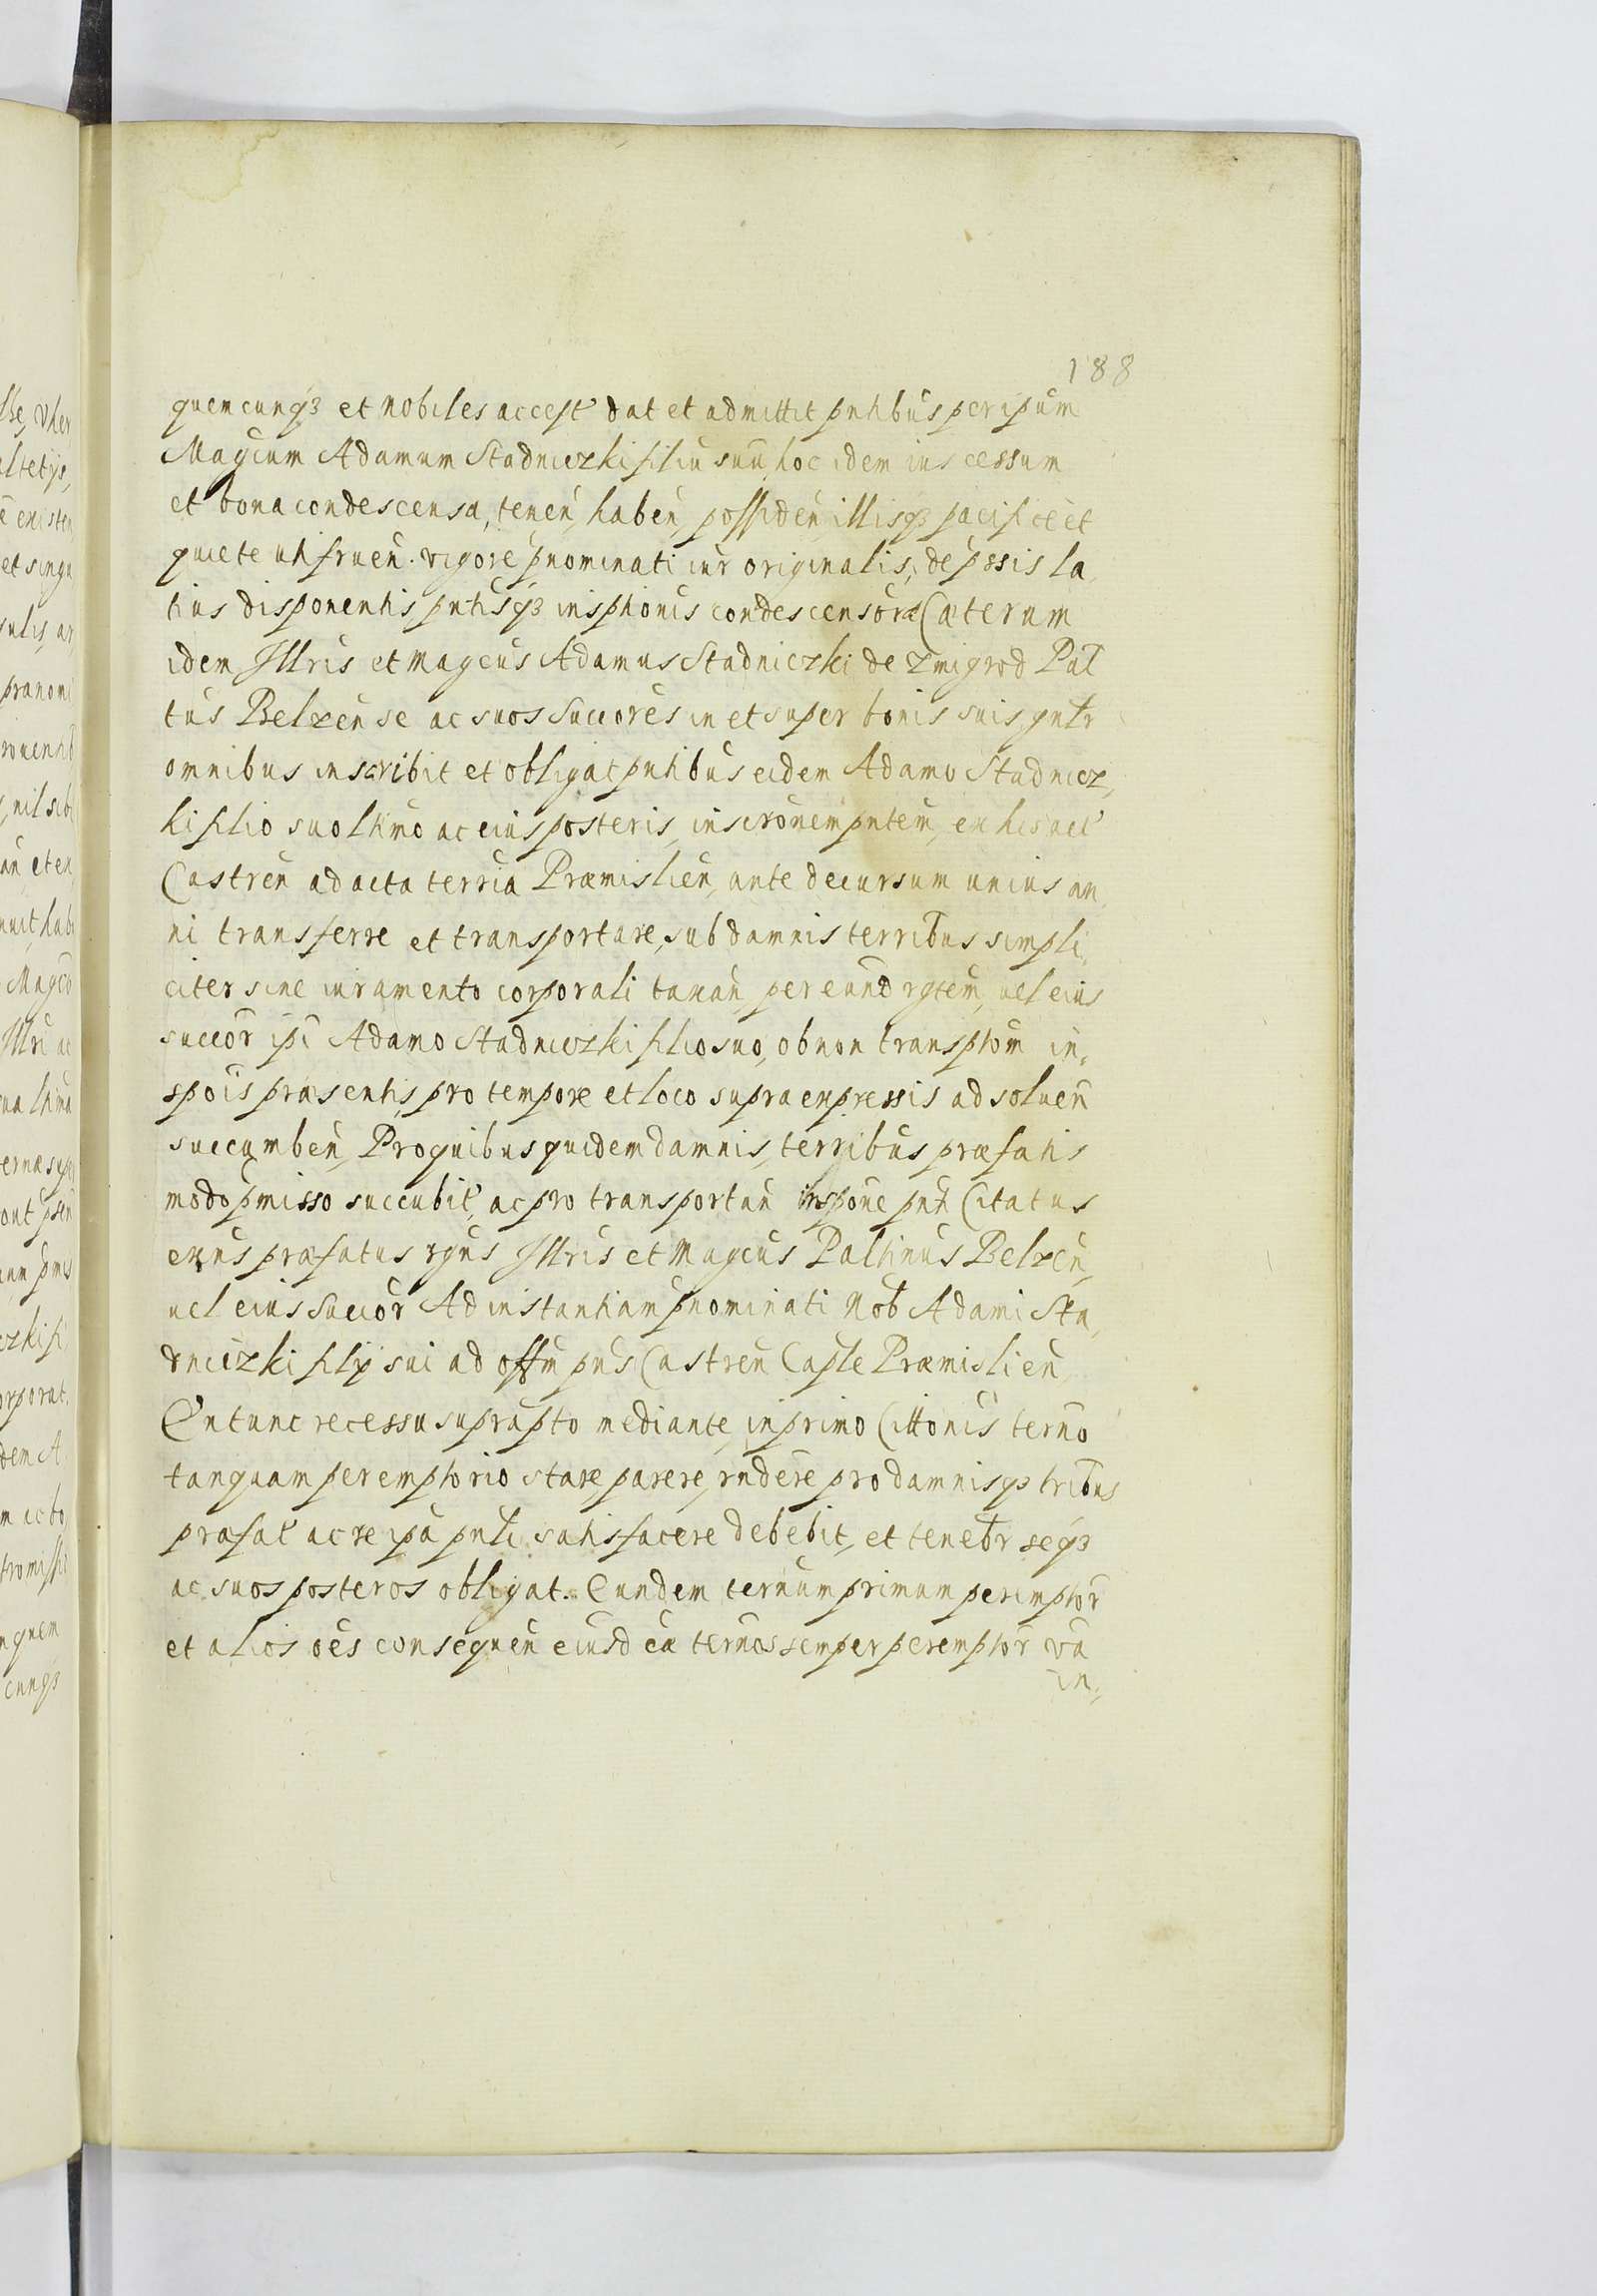 188
quemcunqꝫ et nobiles accept dat et admittit pntibus per ipsum
Magcum Adamum Stadniczki filiū suū hoc idem ius cessum
et bona condescensa, tenen̄ haben̄ possiden̄ illisqꝫ pacifice et
quiete uti fruen̄. vigore pnominati iur originalis, de pssis la
tius disponentis pntisqꝫ insptionis condescensoræ Cæterum
idem Illris et Magcus Adamus Stadniczki de Zmigrod Pal
tus Belzense ac suos Succores in et super bonis suis gnlr
omnibus inscribit et obligat pntibus eidem Adamo Stadnicz,
ki filio suo lttmo ac eius posteris, inscronem pntem, ex his
Castren̄ ad acta terria Præmislien̄, ante decursum unius an
ni transferre et transportare, sub damnis terribus simpli,
citer sine iuramento corporali taxan̄, per eund rgtem, uel eius
succor ipi Adamo Stadniczki filio suo, ob non transptom in,
spois præsentis, pro tempore et loco supra expressis ad soluen̄
succumben̄, Pro quibus quidem damnis, terribus præfatis
modo pmisso succubit, ac pro transportan̄ inspone pnti Citatus
exns præfatus rgns Illris et Magcus Paltinus Belzen̄,
uel eius Succor Ad instantiam pnominati Nob Adami Sta,
dniczki filÿ sui ad offm pns Castren̄ Capte Præmislien̄
Ex tunc recessu supra pto mediante, in primo Cittonis terno
tanquam peremptorio stare, parere, rndere pro damnisqꝫ tribus
præfat ac re ipa pnti satisfacere debebit, et tenebr seqꝫ
ac suos posteros obligat. Eundem ternum primum peremptor
et alios oēs consequen̄ eiusd ea ternos semper peremptor va
in,